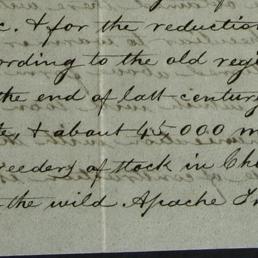 c. & for the reduction
ording to the old regi
the end of last century
te, & about 45.000 m
reeders of stock in Chi
the wild Apache In